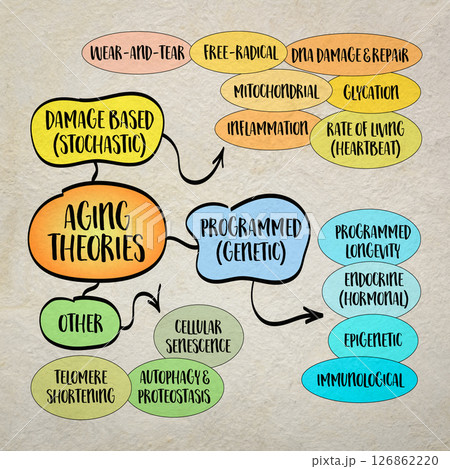 WEAR-AND-TEAR
FREE-RADICAL
DNA DAMAGE & REPAIR
MITOCHONDRIAL
GLYCATION
INFLAMMATION
RATE OF LIVING
(HEARTBEAT)
DAMAGE BASED
(STOCHASTIC)
AGING
THEORIES
PROGRAMMED
(GENETIC)
PROGRAMMED
LONGEVITY
ENDOCRINE
(HORMONAL)
EPIGENETIC
IMMUNOLOGICAL
OTHER
CELLULAR
SENESCENCE
TELOMERE
SHORTENING
AUTOPHAGY &
PROTEOSTASIS
PIXTA
126862220